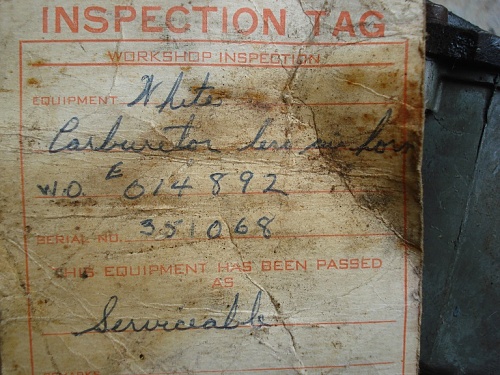 INSPECTION TAG
WORKSHOP INSPECTION
EQUIPMENT White
Carburetor less air horn
W.O. E 014892
SERIAL NO. 351068
THIS EQUIPMENT HAS BEEN PASSED
AS
Serviceable